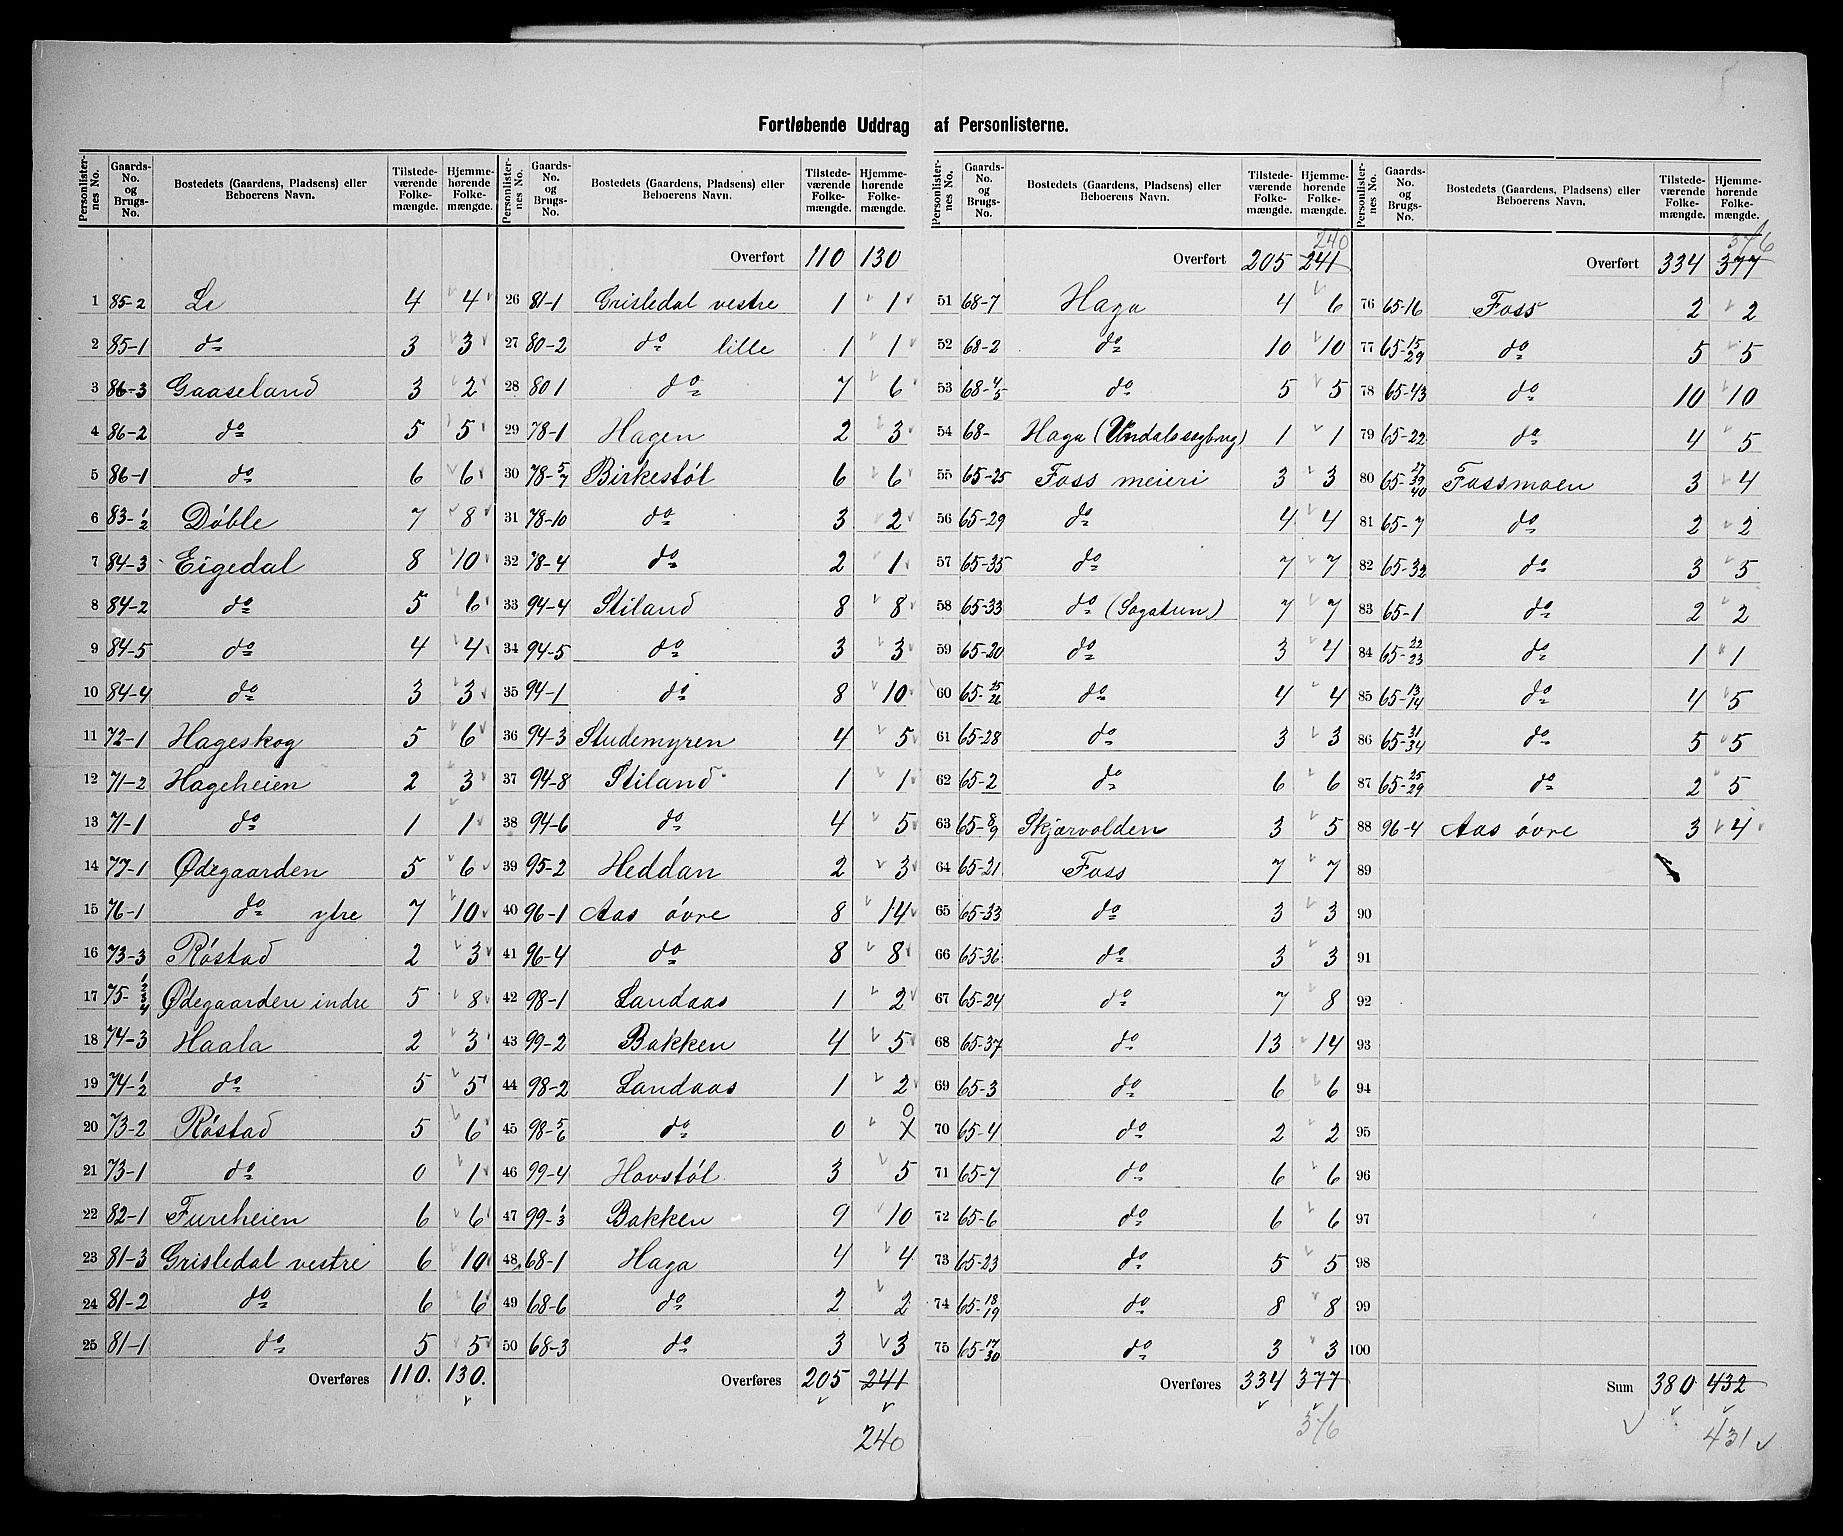 5
Fortløbende Uddrag af Personlisterne.
Personlisternes No. | Gaards-No. og Brugs-No. | Bostedets (Gaardens, Pladsens) eller Beboerens Navn. | Tilstedeværende Folkemængde. | Hjemmehørende Folkemængde.
1 85-2 Le 4 4
2 85-1 do 3 3
3 86-3 Gaaseland 3 2
4 86-2 do 5 5
5 86-1 do 6 6
6 83-1/2 Døble 7 8
7 84-3 Eigedal 8 10
8 84-2 do 5 6
9 84-5 do 4 4
10 84-4 do 3 3
11 72-1 Hageskog 5 6
12 71-2 Hageheien 2 3
13 71-1 do 1 1
14 77-1 Ødegaarden 5 6
15 76-1 do ytre 7 10
16 73-3 Røstad 2 3
17 75-1/2/3/4 Ødegaarden indre 5 8
18 74-3 Haala 2 3
19 74-1/2 do 5 5
20 73-2 Røstad 5 6
21 73-1 do 0 1
22 82-1 Fureheien 6 6
23 81-3 Grisledal vestre 6 10
24 81-2 do 6 6
25 81-1 do 5 5
Overføres 110. 130.
Personlisternes No. | Gaards-No. og Brugs-No. | Bostedets (Gaardens, Pladsens) eller Beboerens Navn. | Tilstedeværende Folkemængde. | Hjemmehørende Folkemængde.
Overført 110 130
26 81-1 Grisledal vestre 1 1
27 80-2 do lille 1 1
28 80 1 do 7 6
29 78-1 Hagen 2 3
30 78-5/7 Birkestøl 6 6
31 78-10 do 3 2
32 78-4 do 2 1
33 94-4 Stiland 8 8
34 94-5 do 3 3
35 94-1 do 8 10
36 94-3 Studemyren 4 5
37 94-8 Stiland 1 1
38 94-6 do 4 5
39 95-2 Heddan 2 3
40 96-1 Aas øvre 8 14
41 96-4 do 8 8
42 98-1 Landaas 1 2
43 99-2 Bakken 4 5
44 98-2 Landaas 1 2
45 98-5/6 do 0 0
46 99-4 Hovstøl 3 5
47 99-1/3 Bakken 9 10
48 68-1 Haga 4 4
49 68-6 do 2 2
50 68-3 do 3 3
Overføres 205 241
240
Personlisternes No. | Gaards-No. og Brugs-No. | Bostedets (Gaardens, Pladsens) eller Beboerens Navn. | Tilstedeværende Folkemængde. | Hjemmehørende Folkemængde.
240
Overført 205 241
51 68-7 Haga 4 6
52 68-2 do 10 10
53 68-4/5 do 5 5
54 68- Haga (Undalssagbrug) 1 1
55 65-25 Foss meieri 3 3
56 65-29 do 4 4
57 65-35 do 7 7
58 65-33 do (Sagatun) 7 7
59 65-20 do 3 4
60 65-25/26 do 4 4
61 65-28 do 3 3
62 65-2 do 6 6
63 65-8/9 Skjærvolden 3 5
64 65-21 Foss 7 7
65 65-33 do 3 3
66 65-36 do 3 3
67 65-24 do 7 8
68 65-37 do 13 14
69 65-3 do 6 6
70 65-4 do 2 2
71 65-7 do 6 6
72 65-6 do 6 6
73 65-23 do 5 5
74 65-18/19 do 8 8
75 65-17/30 do 3 3
Overføres 334 377
376
Personlisternes No. | Gaards-No. og Brugs-No. | Bostedets (Gaardens, Pladsens) eller Beboerens Navn. | Tilstedeværende Folkemængde. | Hjemmehørende Folkemængde.
376
Overført 334 377
76 65-16 Foss 2 2
77 65-15/29 do 5 5
78 65-43 do 10 10
79 65-22 do 4 5
80 65-27/39/40 Fossmoen 3 4
81 65-7 do 2 2
82 65-32 do 3 5
83 65-1 do 2 2
84 65-22/23 do 1 1
85 65-13/14 do 4 5
86 65-31/34 do 5 5
87 65-25/29 do 2 5
88 96-4 Aas øvre 3 4
89
90
91
92
93
94
95
96
97
98
99
100
Sum 380 432
431